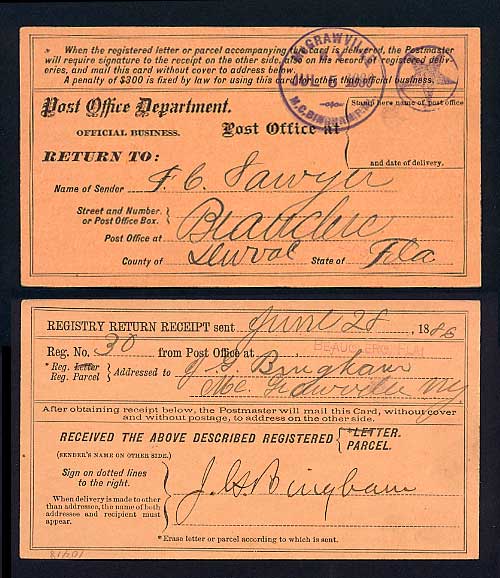 When the registered letter or parcel accompanying this card is delivered, the Postmaster
will require signature to the receipt on the other side, and on his record of registered deliv-
eries, and mail this card without cover to address below.
A penalty of $300 is fixed by law for using this card for other than official business.
McGRAWVILLE
JUL 5 1886
M.C. BINGHAM P.M.
Post Office Department.
OFFICIAL BUSINESS.
Post Office at
Stamp here name of post office
and date of delivery.
RETURN TO:
Name of Sender F. C. Sawyer
Street and Number,
or Post Office Box.
Post Office at Beauclerc
County of Duval State of Fla
REGISTRY RETURN RECEIPT sent June 28, 1886
Reg. No. 30 from Post Office at BEAUCLERC, FLA.
* Reg. Letter
Reg. Parcel
Addressed to J G. Bingham
NY
After obtaining receipt below, the Postmaster will mail this Card, without cover
and without postage, to address on the other side.
RECEIVED THE ABOVE DESCRIBED REGISTERED
*LETTER.
PARCEL.
(SENDER'S NAME ON OTHER SIDE.)
Sign on dotted lines
to the right.
When delivery is made to other
than addressee, the name of both
addressee and recipient must
appear.
J. G. Bingham
* Erase letter or parcel according to which is sent.